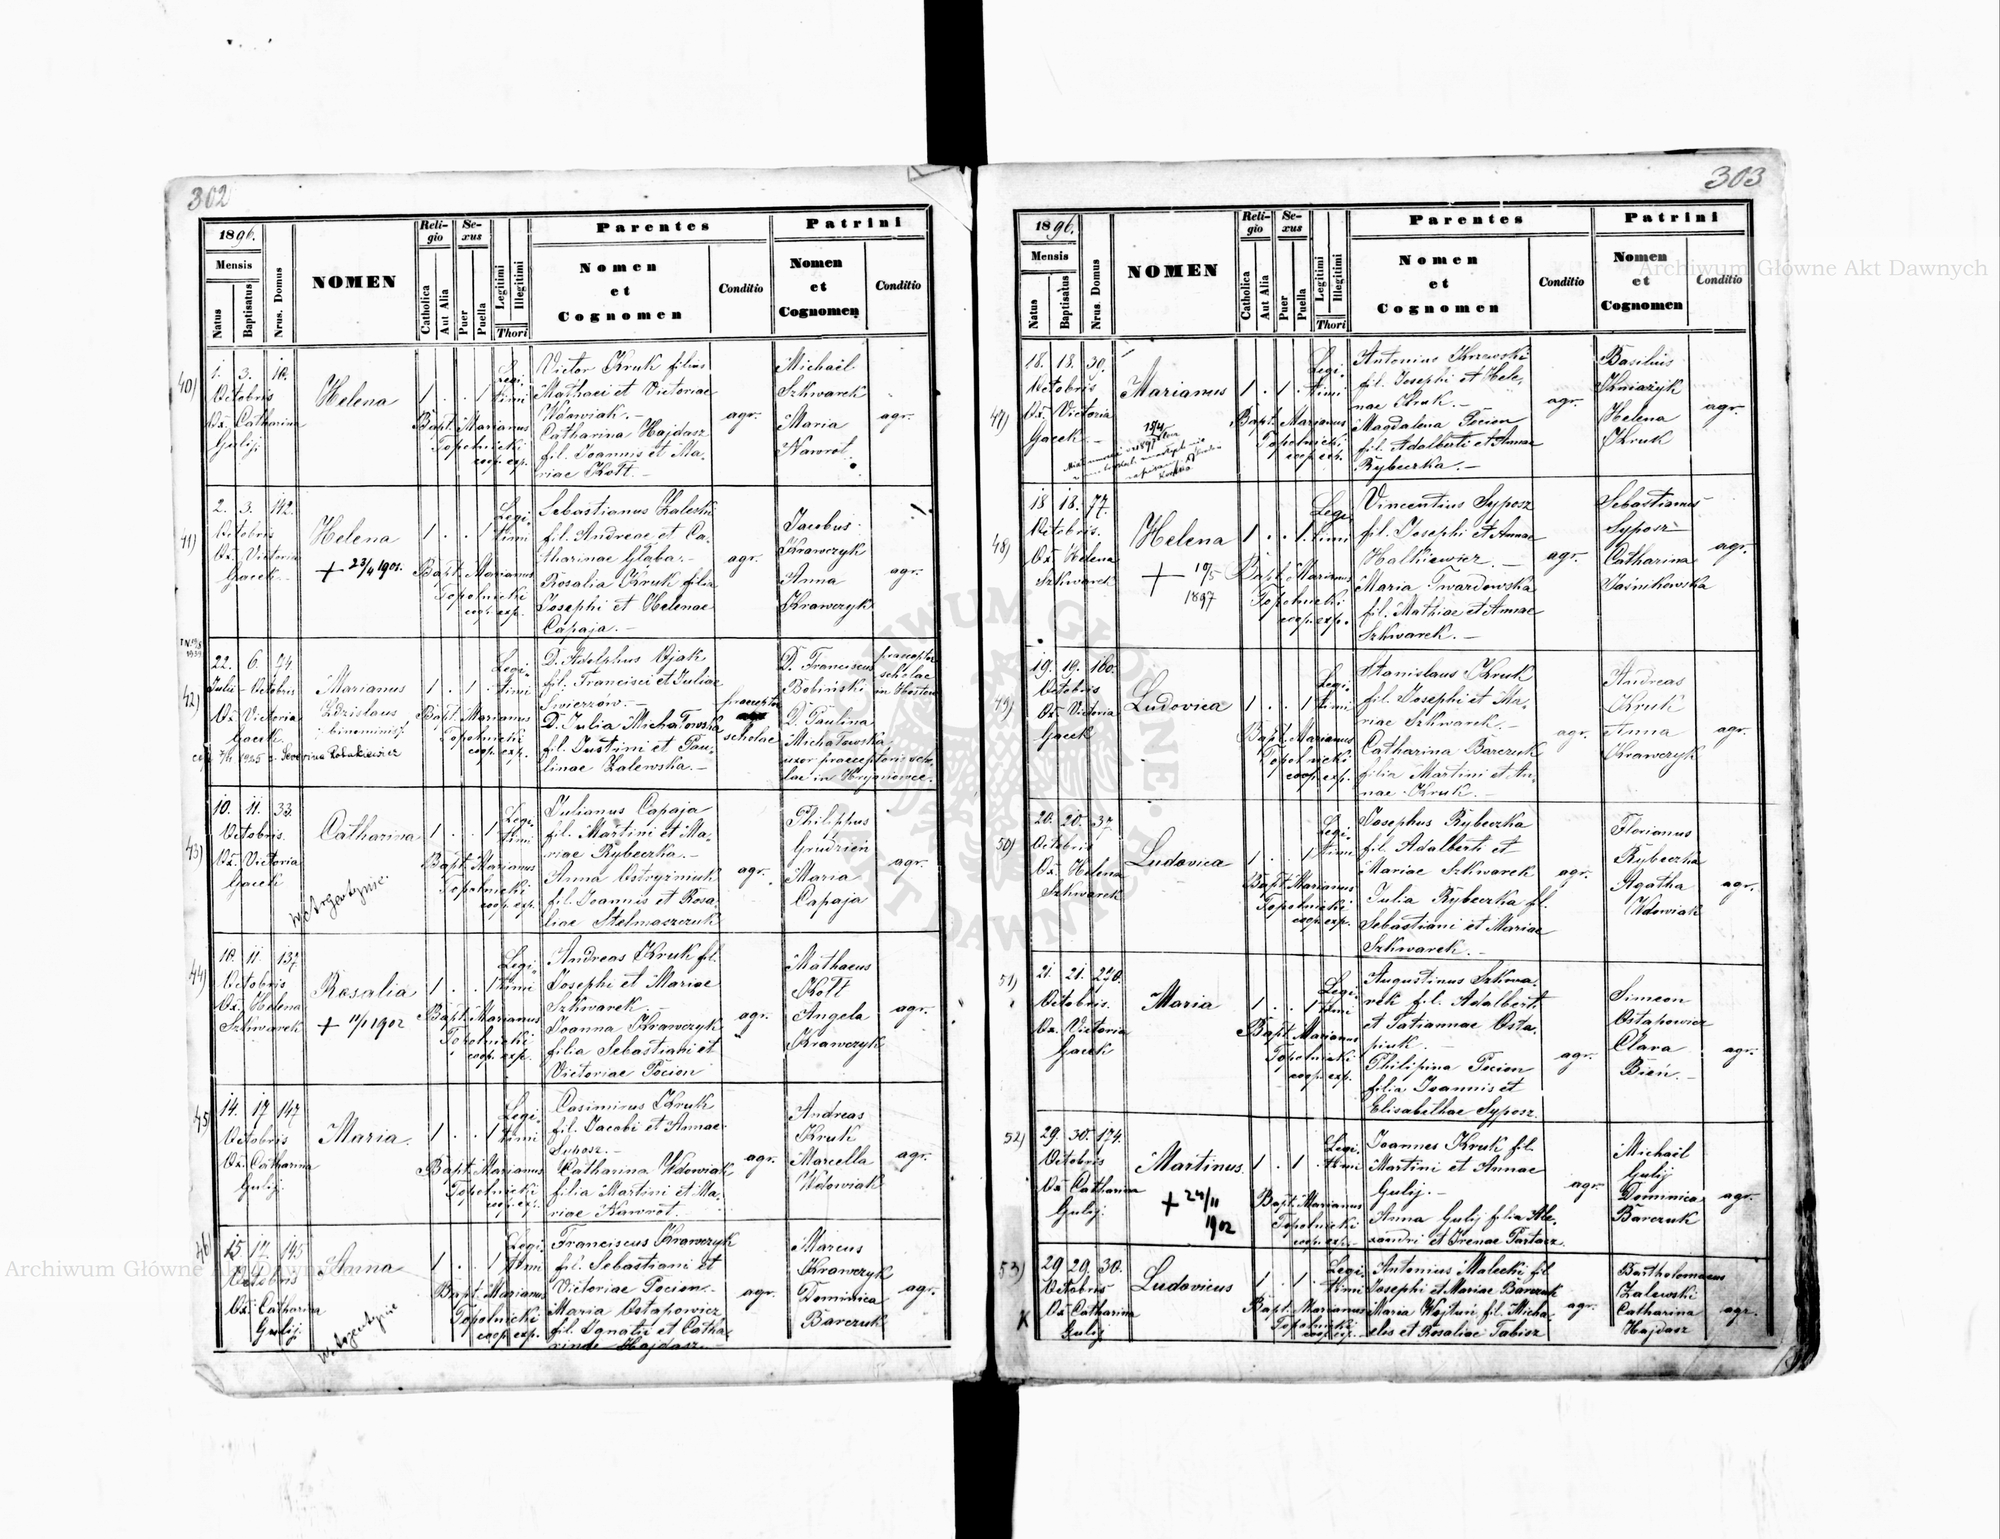 302
1896.
Mensis
Natus
Baptisatus
Nrus. Domus
NOMEN
Religio
Catholica
Aut Alia
Sexus
Puer
Puella
Legitimi
Illegitimi
Thori
Parentes
Nomen
et
Cognomen
Conditio
Patrini
Nomen
et
Cognomen
Conditio
40)
1. 3. 10.
Octobris
Ox. Catharina
Gulij
Helena
1 . . 1
Legi-
timi
Bapt. Marianus
Topolnicki
coop. exp.
Victor Kruk filius
Mathaei et Victoriae
Wdowiak.-
Catharina Hajdasz
fil. Joannis et Ma-
riae Kott.-
agr.
Michaël
Szkwarek
Maria
Nawrot
agr.
41)
2. 3. 142.
Octobris
Ox. Victoria
Gacek
Helena
+ 23/4 1901.
1 . . 1
Legi-
timi
Bapt. Marianus
Topolnicki
coop. exp.
Sebastianus Zaleski
fil. Andreae et Ca-
tharinae Głąba.-
Rosalia Kruk filia
Josephi et Helenae
Capaja.-
agr.
Jacobus
Krawczyk
Anna
Krawczyk
agr.
42)
22. 6. 24
Julii - Octobris
Ox. Victoria
Gacek
Marianus
Zdzislaus
binominis
1 . 1 .
Legi-
timi
Bapt. Marianus
Topolnicki
coop. exp.
D. Adolphus Ojak
fil. Francisci et Juliae
Świerzów.-
D. Julia Michałowska
fil. Justini et Pau-
linae Zalewska.-
praeceptor
scholae
D. Franciscus
Bobiński
D. Paulina
Michałowska
uxor praeceptoris scho-
lae in
praeceptor
scholae
43)
10. 11. 33.
Octobris.
Ox. Victoria
Gacek
Catharina
1 . . 1
Legi-
timi
Bapt. Marianus
Topolnicki
coop. exp.
Julianus Capaja
fil. Martini et Ma-
riae Rybeczka.-
Anna Ostryżniuk
fil. Joannis et Rosa-
liae Stelmaszczuk
agr.
Philippus
Grudzień
Maria
Capaja
agr.
44)
10. 11. 137
Octobris
Ox. Helena
Szkwarek
Rosalia
+ 11/1 1902
1 . . 1
Legi-
timi
Bapt. Marianus
Topolnicki
coop. exp.
Andreas Kruk fil.
Josephi et Mariae
Szkwarek.
Joanna Krawczyk
filia Sebastiani et
Victoriae Pocion
agr.
Mathaeus
Kott
Angela
Krawczyk
agr.
45)
14. 17 147
Octobris
Ox. Catharina
Gulij
Maria.
1 . . 1
Legi-
timi
Bapt. Marianus
Topolnicki
coop. exp.
Casimirus Kruk
fil. Jacobi et Annae
Syposz.-
Catharina Wdowiak
filia Martini et Ma-
riae Nawrot.
agr.
Andreas
Kruk
Marcella
Wdowiak
agr.
46)
15 17. 145
Octobris
Ox. Catharina
Gulij.
Anna
1 . . 1
Legi-
timi
Bapt. Marianus
Topolnicki
coop. exp.
Franciscus Krawczyk
fil. Sebastiani et
Victoriae Pocion.
Maria Ostapowicz
fil. Ignatii et Catha-
rinae Hajdasz.-
agr.
Marcus
Krawczyk
Dominica
Barczuk
agr.
303
1896.
Mensis
Natus
Baptisatus
Nrus. Domus
NOMEN
Religio
Catholica
Aut Alia
Sexus
Puer
Puella
Legitimi
Illegitimi
Thori
Parentes
Nomen
et
Cognomen
Conditio
Patrini
Nomen
et
Cognomen
Conditio
47)
18. 18. 30.
Octobris
Ox. Victoria
Gacek.-
Marianus
1 . 1 .
Legi-
timi
Bapt. Marianus
Topolnicki
coop. exp.
Antonius Krzewski
fil. Josephi et Hele-
nae Kruk.-
Magdalena Pocion
fil. Adalberti et Annae
Rybeczka.-
agr.
Basilius
Kniazyk
Helena
Kruk
agr.
48)
18 18. 77.
Octobris.
Ox. Helena
Szkwarek
Helena
+ 10/5
1897
1 . . 1.
Legi-
timi
Bapt. Marianus
Topolnicki
coop. exp.
Vincentius Syposz
fil. Josephi et Annae
Halkiewicz.-
Maria Twardowska
fil. Mathiae et Annae
Szkwarek.-
agr.
Sebastianus
Syposz
Catharina
Jaśnikowska
agr.
49)
19. 19. 160.
Octobris
Ox. Victoria
Gacek
Ludovica
1 . . 1
Legi-
timi
Bapt. Marianus
Topolnicki
coop. exp.
Stanislaus Kruk
fil. Josephi et Ma-
riae Szkwarek.-
Catharina Barczuk
filia Martini et An-
nae Kruk.-
agr.
Andreas
Kruk
Anna
Krawczyk
agr.
50)
20. 20. 37
Octobris
Ox. Helena
Szkwarek
Ludovica
1 . . 1
Legi-
timi
Bapt. Marianus
Topolnicki
coop. exp.
Josephus Rybeczka
fil. Adalberti et
Mariae Szkwarek
Julia Rybeczka fil.
Sebastiani et Mariae
Szkwarek.-
agr.
Florianus
Rybeczka
Agatha
Wdowiak
agr.
51)
21. 21. 220.
Octobris.
Ox. Victoria
Gacek
Maria
1 . . 1
Legi-
timi
Bapt. Marianus
Topolnicki
coop. exp.
Augustinus Szkwa-
rek fil. Adalberti
et Tatiannae Osta-
piuk.-
Philipina Pocion
filia Joannis et
Elisabethae Syposz.
agr.
Simeon
Ostapowicz
Clara
Bień.-
agr.
52)
29. 30. 174.
Octobris
Ox. Catharina
Gulij.
Martinus.
+ 24/11
1902
1 . 1 .
Legi-
timi
Bapt. Marianus
Topolnicki
coop. exp.
Joannes Kruk fil.
Martini et Annae
Gulij.-
Anna Gulij filia Ale-
xandri et Irenae Partacz
agr.
Michaël
Gulij
Dominica
Barczuk
agr.
53)
29 29. 30.
Octobris
Ox. Catharina
Gulij
Ludovicus
1 . 1 .
Legi-
timi
Bapt. Marianus
Topolnicki
coop. exp.
Antonius Malecki fil
Josephi et Mariae Barczuk
Maria Wojtuń fil. Micha-
elis et Rosaliae Tabisz
agr.
Bartholomaeus
Zalewski
Catharina
Hajdasz
agr.
Archiwum Główne Akt Dawnych
Archiwum Główne Akt Dawnych
ARCHIWUM GŁÓWNE AKT DAWNYCH